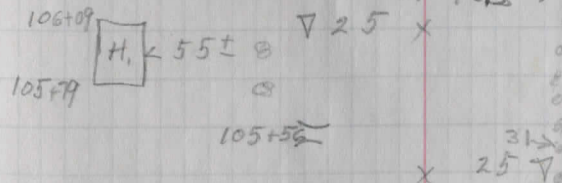 106+09
H, < 55± ∇ 25 x
105+79
105+56
31
x 25 ∇